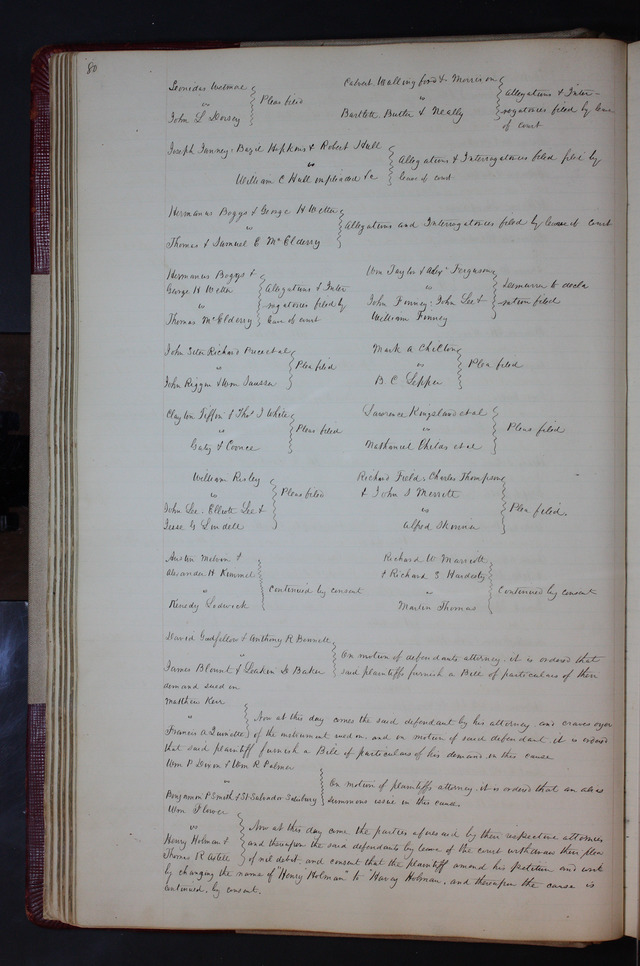 80
Leonidas Wetmore
vs
John L Dorsey
Pleas filed
Calvert Wallingford & Morrison
vs
Bartlett Butler & Neally
Allegations & Inter-
rogatories filed by leave
of court
Joseph Tanney, Bazil Hopkins & Robert Hull
vs
William C Hall impleaded &c
Allegations & Interrogatories filed by
leave of court
Hermanus Boggs & George H Wetter
vs
Thomas & Samuel E McElderry
Allegations and Interrogatories filed by leave of court
Hermanus Boggs &
George H Wetter
vs
Thomas McElderry
Allegations & Inter
rogatories filed by
leave of court
Wm Taylor & Ferguson
vs
John Finney, John Lee &
William Finney
Demurrer to decla
ration filed
John Richard Price et al
vs
John Riggin & Wm
Plea filed
Mark A Chilton
vs
B. C. Lepper
Plea filed
Clayton Tiffin & Thos J White
vs
Gaty & Coonce
Pleas filed
Lawrence Kingsland et al
vs
Nathaniel Childs et al
Pleas filed
William Risley
vs
John Lee, Elliott Lee &
Jesse G Lindell
Pleas filed
Richard Field, Charles Thompson
& John S Merrett
vs
Alfred
Plea filed.
Austin Melvin &
Alexander H Kemmel
vs
Kenedy Lodwick
Continued by consent
Richard W Marriott
& Richard S Hardesty
vs
Martin Thomas
Continued by consent
David Goodfellow & Anthony R Bennett
vs
James Blount & D Baker
On motion of defendants attorney, it is ordered that
said plaintiffs furnish a Bill of particulars of their
demand sued on
Matthew Kerr
vs
Francis A Quinette
Now at this day comes the said defendant by his attorney and craves oyer
of the instrument sued on, and on motion of said defendant it is ordered
that said plaintiff furnish a Bill of particulars of his demand in this cause
Wm P Devon & Wm R Palmer
vs
Benjamin P Smith & St Salvador Salsbury
On motion of plaintiffs attorney, it is ordered that an alias
summons issue in this cause.
Wm Flower
vs
Henry Holman &
Thomas R
Now at this day come the parties aforesaid by their respective attornies
and thereupon the said defendants by leave of the court withdraw their plea
of nil debet, and consent that the plaintiff amend his petition and writ
by changing the name of "Henry Holman" to "Harvey Holman, and thereupon the cause is
continued, by consent.